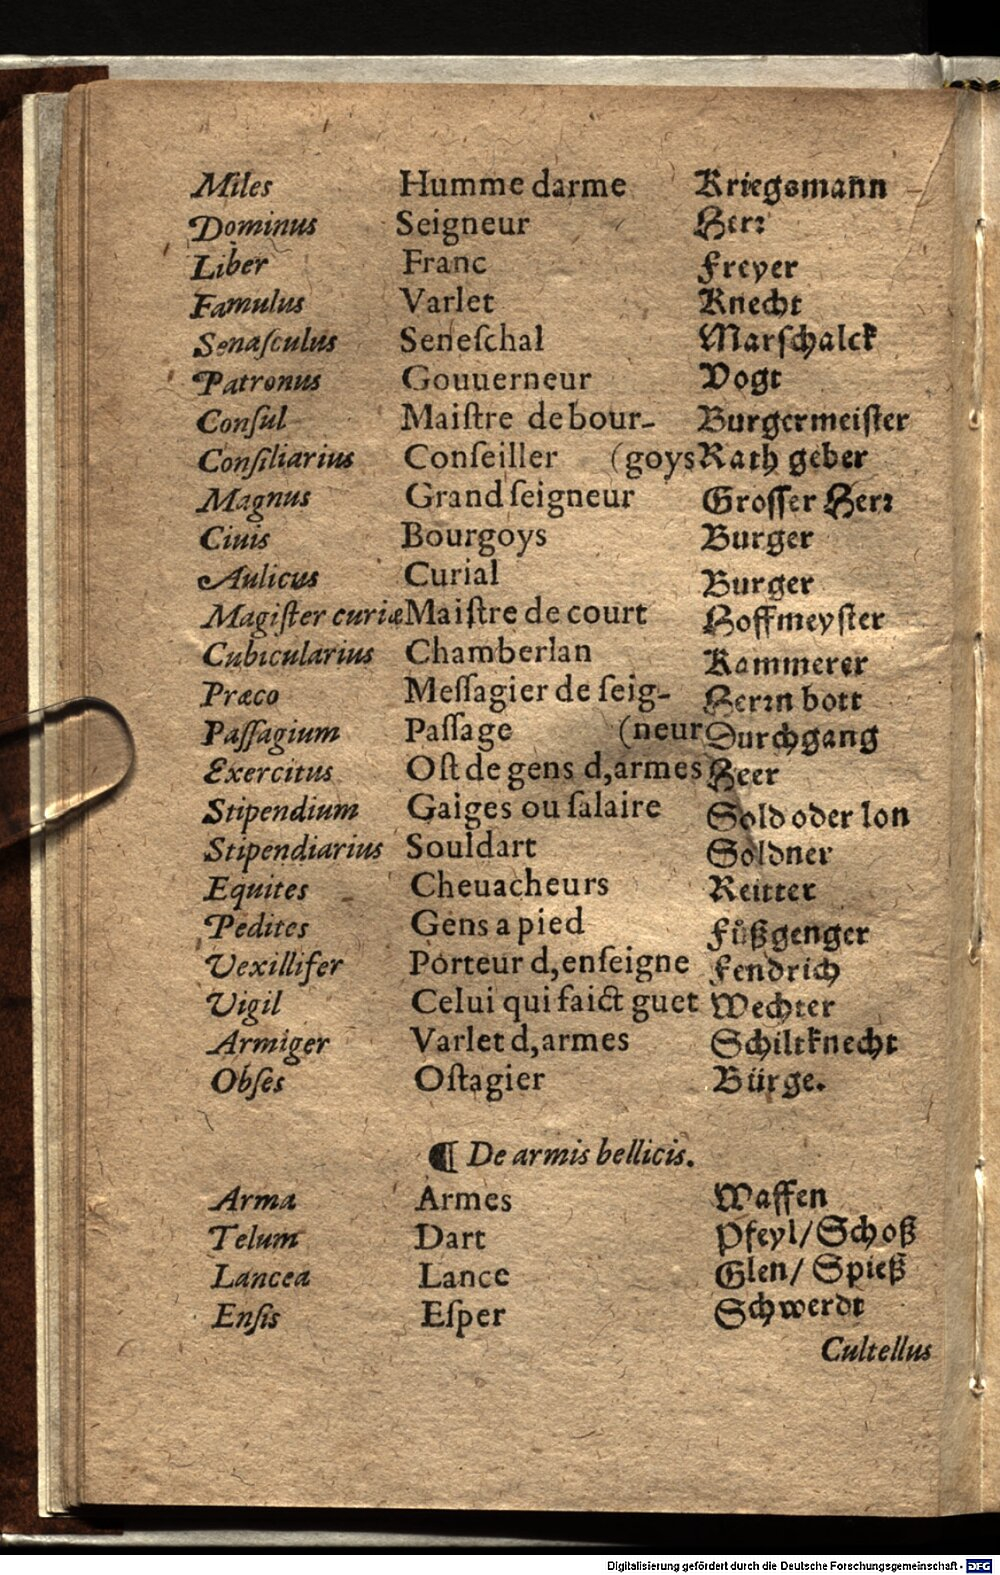 Miles Humme darme Kriegsmañ
Dominus Seigneur Herꝛ
Liber Franc Freyer
Famulus Varlet Knecht
Senaſculus Seneſchal Marſchalck
Patronus Gouuerneur Vogt
Conſul Maiſtre de bour- Burgermeiſter
Conſiliarius Conſeiller (goys Rath geber
Magnus Grand ſeigneur Groſſer Herꝛ
Ciuis Bourgoys Burger
Aulicus Curial Burger
Magiſter curiæ Maiſtre de court Hoffmeyſter
Cubicularius Chamberlan Kammerer
Præco Meſſagier de ſeig- Herꝛn bott
Paſſagium Paſſage (neur Durchgang
Exercitus Oſt de gens d,armes Heer
Stipendium Gaiges ou ſalaire Sold oder lon
Stipendiarius Souldart Soldner
Equites Cheuacheurs Reitter
Pedites Gens a pied Fůßgenger
Vexillifer Porteur d,enſeigne Fendrich
Vigil Celui qui faict guet Wechter
Armiger Varlet d,armes Schiltknecht
Obſes Oſtagier Bürge.
¶ De armis bellicis.
Arma Armes Waffen
Telum Dart Pfeyl/Schoß
Lancea Lance Glen/ Spieß
Enſis Eſper Schwerdt
Cultellus
Digitalisierung gefördert durch die Deutsche Forschungsgemeinschaft - DFG